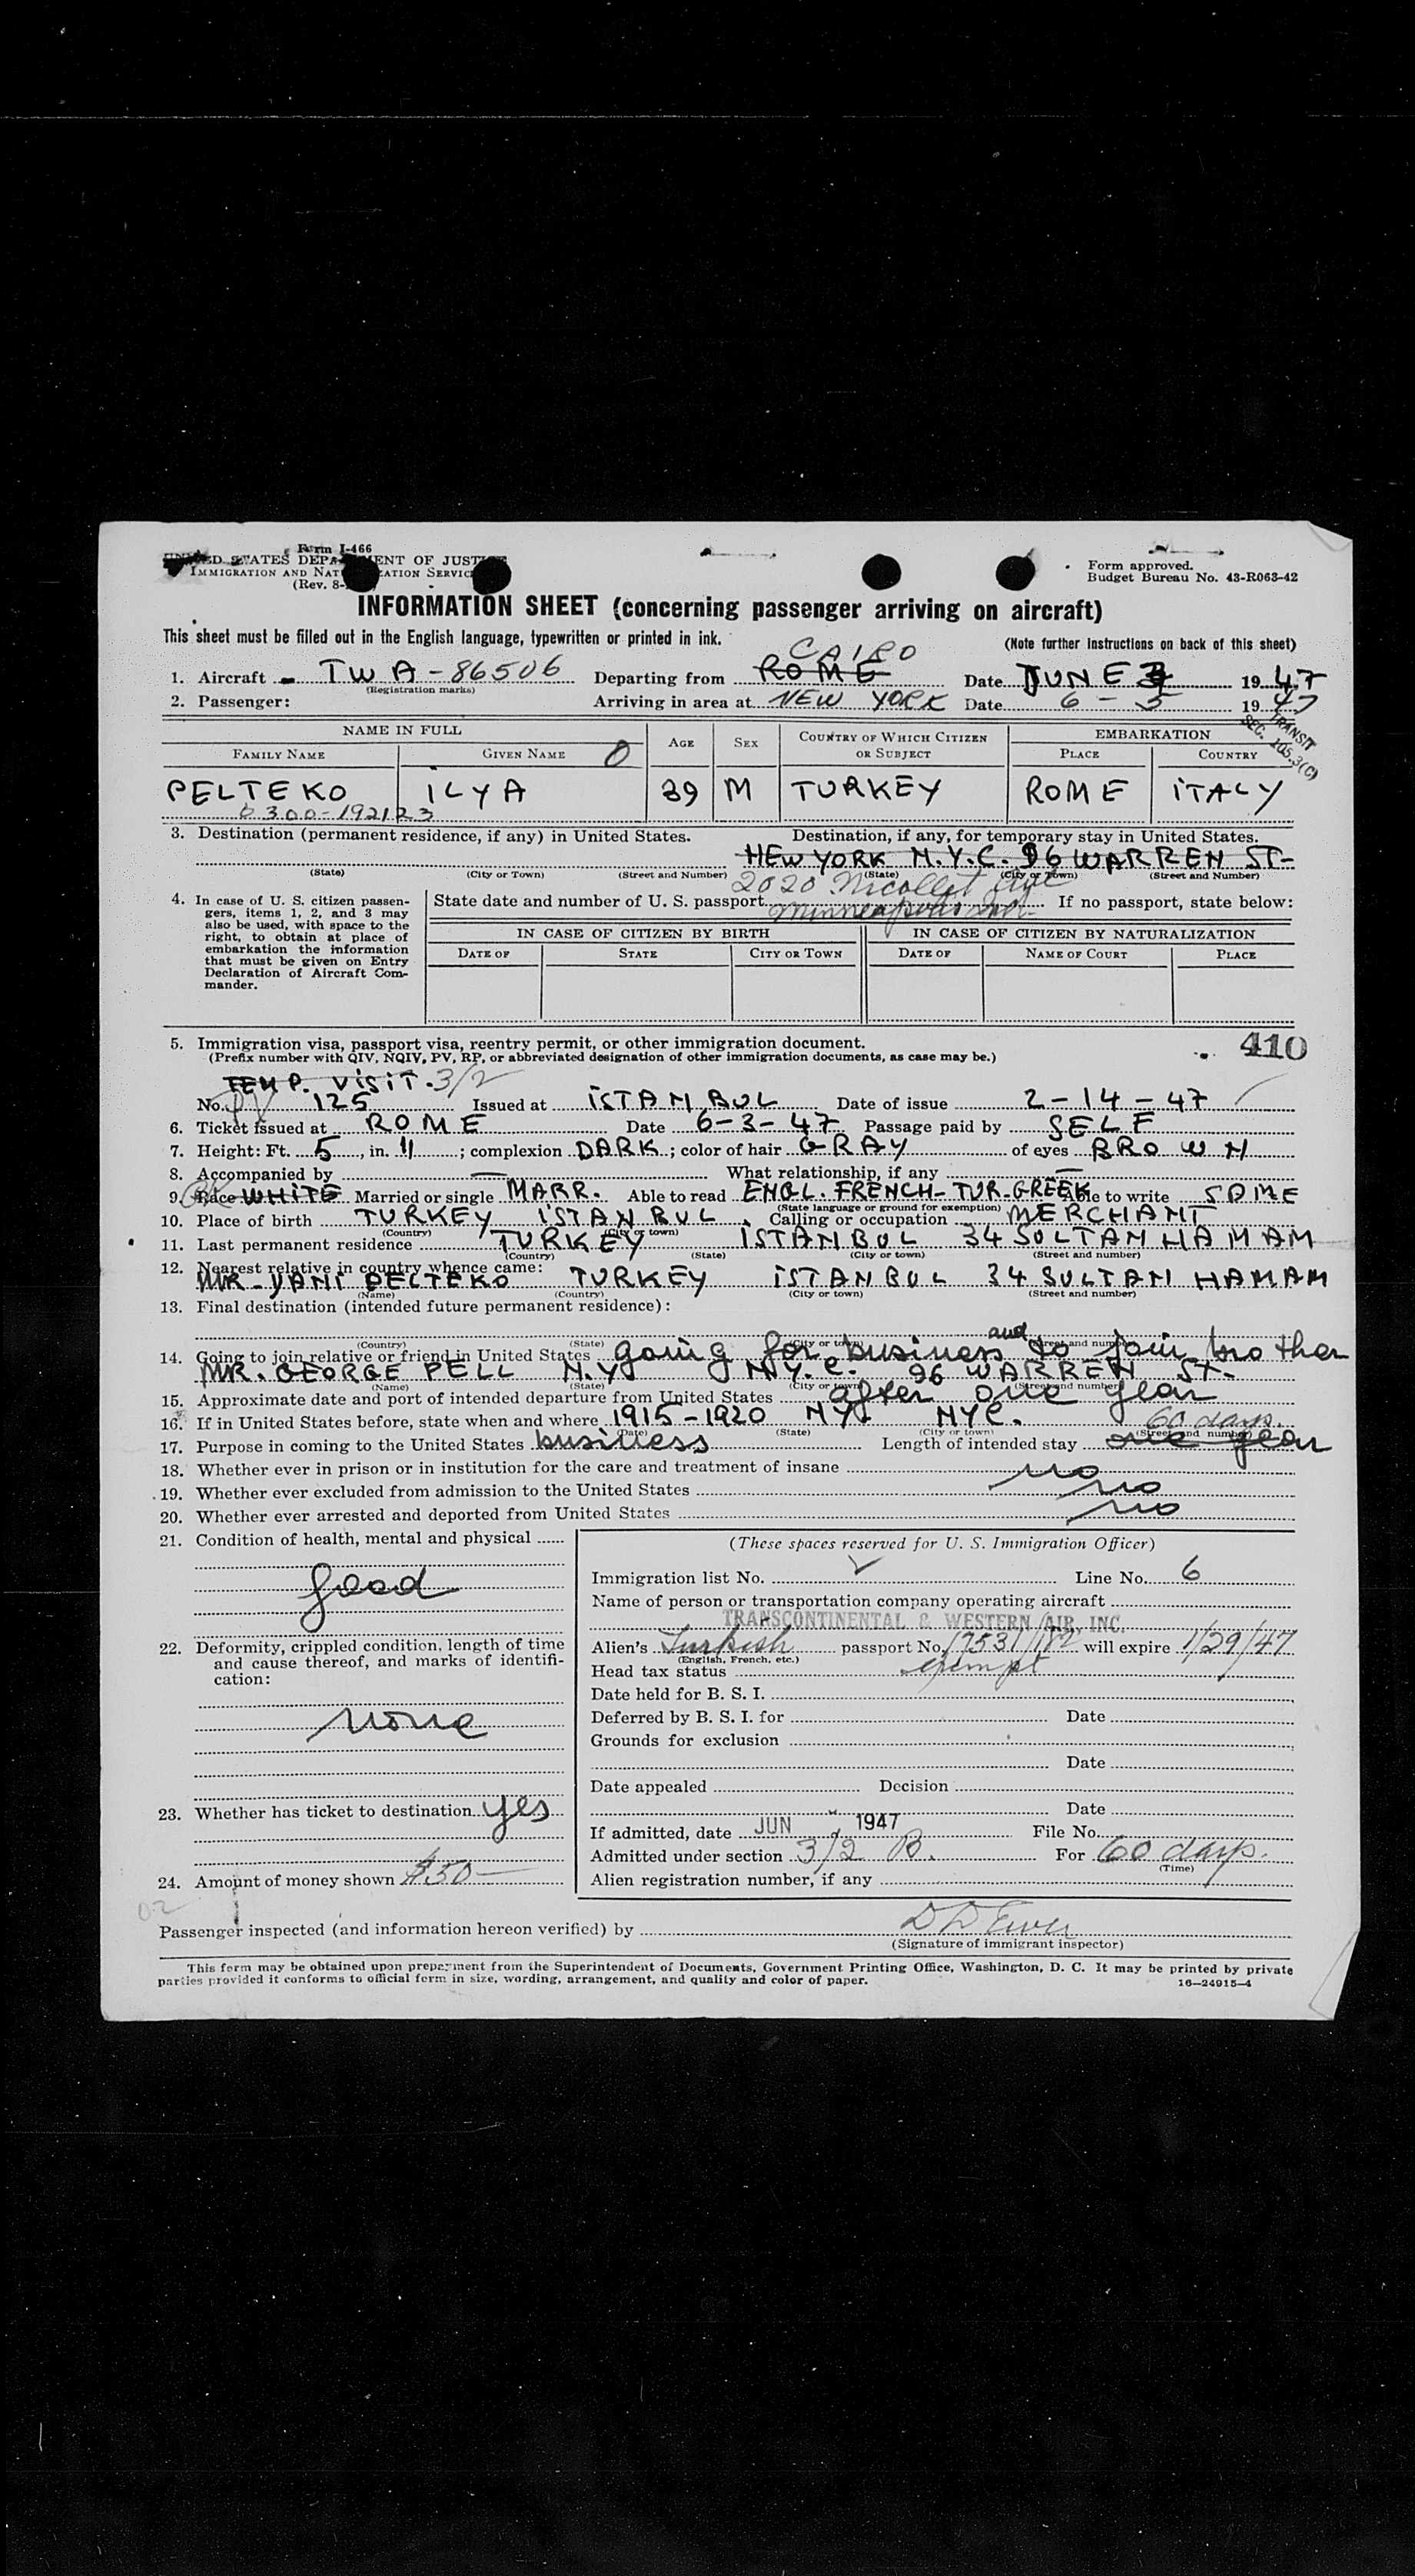 Form I-466
UNITED STATES DEPARTMENT OF JUSTICE
IMMIGRATION AND NATURALIZATION SERVICE
(Rev. 8-
Form approved.
Budget Bureau No. 43-R063-42
INFORMATION SHEET (concerning passenger arriving on aircraft)
This sheet must be filled out in the English language, typewritten or printed in ink.
(Note further instructions on back of this sheet)
CAIRO
1. Aircraft - TWA - 86506 Departing from ROME Date JUNE 3 1947
(Registration marks)
2. Passenger: Arriving in area at NEW YORK Date 6 - 5 1947
TRANSIT
SEC. 105.3(C)
NAME IN FULL AGE SEX COUNTRY OF WHICH CITIZEN OR SUBJECT EMBARKATION
FAMILY NAME GIVEN NAME PLACE COUNTRY
PELTEKO iLYA 39 M TURKEY ROME iTALY
0300-192123
3. Destination (permanent residence, if any) in United States. Destination, if any, for temporary stay in United States.
NEW YORK N.Y.C. 96 WARREN ST-
(State) (City or Town) (Street and Number) (State) (City or Town) (Street and Number)
2020 Nicollet Ave
Minneapolis
4. In case of U. S. citizen passengers, items 1, 2, and 3 may also be used, with space to the right, to obtain at place of embarkation the information that must be given on Entry Declaration of Aircraft Commander.
State date and number of U. S. passport If no passport, state below:
IN CASE OF CITIZEN BY BIRTH IN CASE OF CITIZEN BY NATURALIZATION
DATE OF STATE CITY OR TOWN DATE OF NAME OF COURT PLACE
410
5. Immigration visa, passport visa, reentry permit, or other immigration document.
(Prefix number with QIV, NQIV, PV, RP, or abbreviated designation of other immigration documents, as case may be.)
TEMP. ViSiT. 3/2
No. PV 125 Issued at iSTANBUL Date of issue 2-14-47
6. Ticket issued at ROME Date 6-3-47 Passage paid by SELF
7. Height: Ft. 5, in. 11; complexion DARK; color of hair GRAY of eyes BROWN
8. Accompanied by — What relationship, if any —
9. Race WHITE Married or single MARR. Able to read ENGL. FRENCH-TUR-GREEK Able to write SAME
(State language or ground for exemption)
10. Place of birth TURKEY iSTANBUL. Calling or occupation MERCHANT
(Country) (City or town)
11. Last permanent residence TURKEY iSTANBUL 34 SULTAN HAMAM
(Country) (State) (City or town) (Street and number)
12. Nearest relative in country whence came:
MR-YANI PELTEKO TURKEY iSTANBUL 34 SULTAN HAMAM
(Name) (Country) (City or town) (Street and number)
13. Final destination (intended future permanent residence):
(Country) (State) (City or town) (Street and number)
14. Going to join relative or friend in United States going for business and to join brother
MR. GEORGE PELL N.Y N.Y.C. 96 WARREN ST-
(Name) (State) (City or town) (Street and number)
15. Approximate date and port of intended departure from United States after one year
16. If in United States before, state when and where 1915-1920 NY. NYC.
(Date) (State) (City or town) (Street and number)
60 days.
17. Purpose in coming to the United States business Length of intended stay one year
18. Whether ever in prison or in institution for the care and treatment of insane no
19. Whether ever excluded from admission to the United States no
20. Whether ever arrested and deported from United States no
21. Condition of health, mental and physical
good
22. Deformity, crippled condition, length of time and cause thereof, and marks of identification:
none
23. Whether has ticket to destination yes
24. Amount of money shown $50—
(These spaces reserved for U. S. Immigration Officer)
Immigration list No. Line No. 6
Name of person or transportation company operating aircraft
TRANSCONTINENTAL & WESTERN AIR, INC.
Alien's Turkish passport No. 17531/182 will expire 1/29/47
(English, French, etc.)
Head tax status exempt
Date held for B. S. I.
Deferred by B. S. I. for Date
Grounds for exclusion
Date
Date appealed Decision
Date
If admitted, date JUN 1947 File No.
Admitted under section 3/2 B. For 60 days.
(Time)
Alien registration number, if any
Passenger inspected (and information hereon verified) by
(Signature of immigrant inspector)
This form may be obtained upon prepayment from the Superintendent of Documents, Government Printing Office, Washington, D. C. It may be printed by private
parties provided it conforms to official form in size, wording, arrangement, and quality and color of paper.
16—24915-4